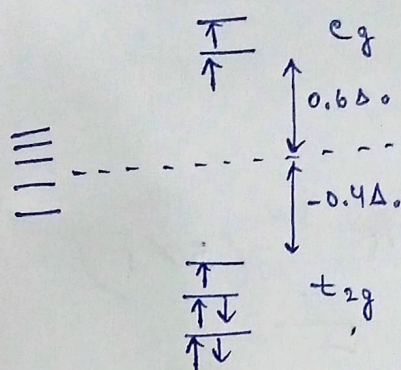 eg
0.6Δ₀
-0.4Δ₀
t₂g